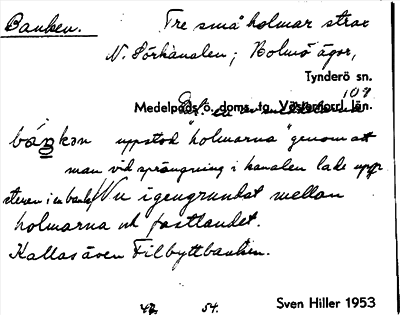 Banken. Tre små holmar strax
N. Sörkanalen; Holmö ägor,
Tynderö sn.
107
Medelpads o. doms. tg. Västernorrl. län.
bánkən uppstod "holmarna" genom att
man vid sprängning i kanalen lade upp
stenen i en bank. Nu igengrundat mellan
holmarna och fastlandet.
Kallas även Filbyttbanken.
42. 54. Sven Hiller 1953